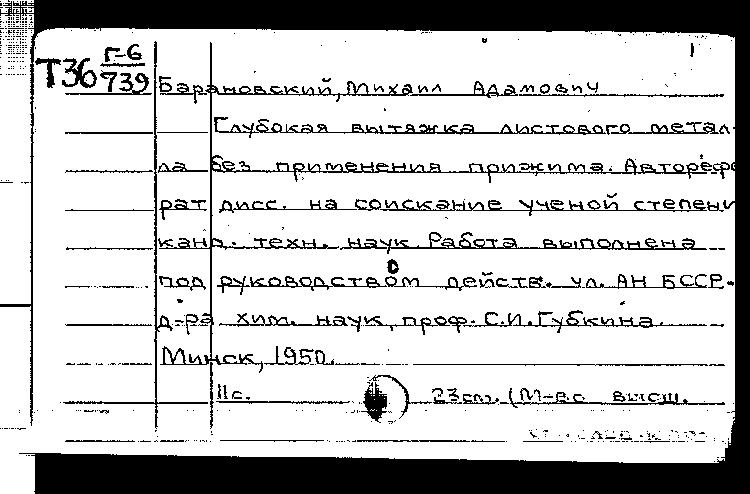 Г-6
Т36 739
Барановский, Михаил Адамович
Глубокая вытяжка листового метал-
ла без применения прижима. Авторефе
рат дисс. на соискание ученой степени
канд. техн. наук. Работа выполнена
под руководством действ. чл. АН БССР.
д-ра хим. наук, проф. С.И. Губкина.
Минск, 1950.
11с. 23см. (М-во высш.